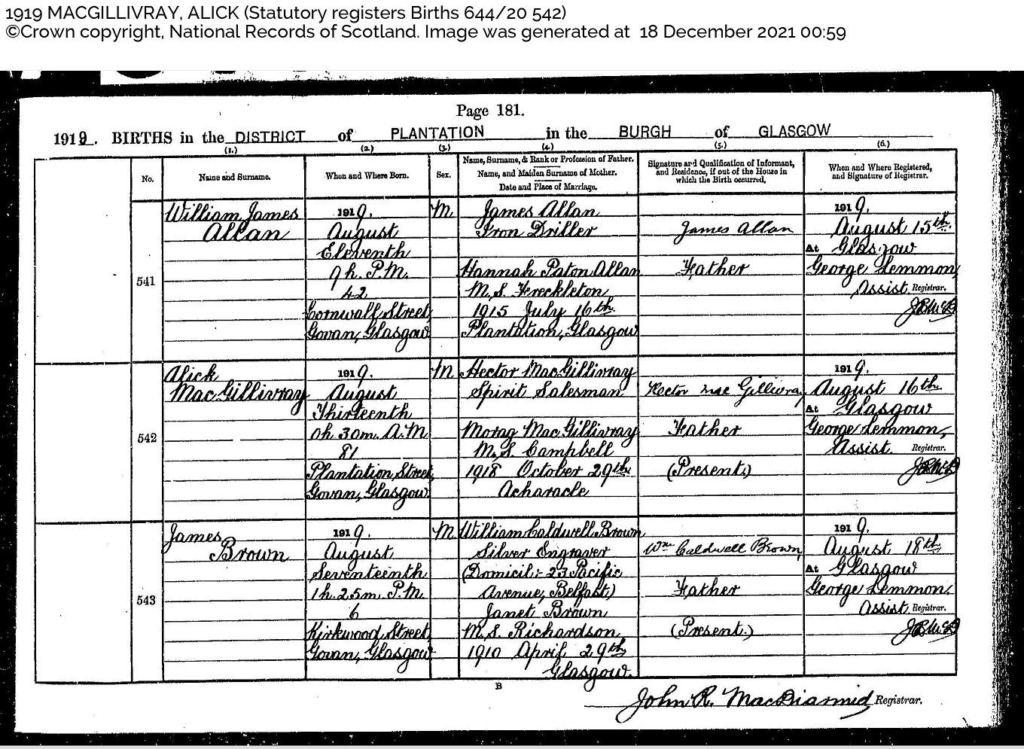 1919 MACGILLIVRAY, ALICK (Statutory registers Births 644/20 542)
©Crown copyright, National Records of Scotland. Image was generated at 18 December 2021 00:59
Page 181.
1919. BIRTHS in the DISTRICT of PLANTATION in the BURGH of GLASGOW
(1.) (2.) (3.) (4.) (5.) (6.)
No.
Name and Surname.
When and Where Born.
Sex.
Name, Surname, & Rank or Profession of Father.
Name, and Maiden Surname of Mother.
Date and Place of Marriage.
Signature and Qualification of Informant,
and Residence, if out of the House in
which the Birth occurred.
When and Where Registered,
and Signature of Registrar.
541
William James
Allan
1919.
August
Eleventh
9 h. P.M.
42
Cornwall Street
Govan, Glasgow
M.
James Allan
Iron Driller
Hannah Paton Allan
M.S. Freckleton
1915 July 16th
Plantation, Glasgow
James Allan
Father
1919.
August 15th
At Glasgow
George Lemmon
Assist. Registrar.
542
Alick
MacGillivray
1919.
August
Thirteenth
0h. 30m. A.M.
81
Plantation Street
Govan, Glasgow
M.
Hector MacGillivray
Spirit Salesman
Morag MacGillivray
M.S. Campbell
1918 October 29th
Acharacle
Hector MacGillivray
Father
(Present.)
1919.
August 16th
At Glasgow
George Lemmon,
Assist. Registrar.
543
James
Brown
1919.
August
Seventeenth
1h. 25m. P.M.
6
Kirkwood Street
Govan, Glasgow
M.
William Caldwell Brown
Silver Engraver
(Domicil:- 23 Pacific
Avenue, Belfast)
Janet Brown
M.S. Richardson
1910 April 29th
Glasgow.
Wm Caldwell Brown
Father
(Present.)
1919.
August 18th
At Glasgow
George Lemmon
Assist. Registrar.
B
John R. MacDiarmid Registrar.